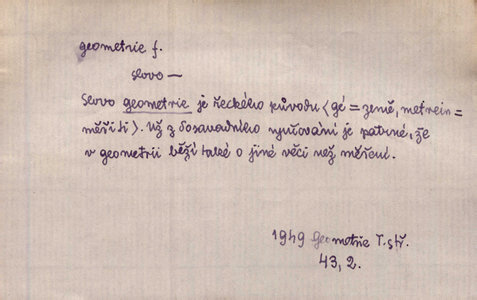 geometrie f.
slovo —
Slovo geometrie je řeckého původu (gé = země, metrein =
měřiti). Už z dosavadního vyučování je patrné, že
v geometrii běží také o jiné věci než měření.
1949 Geometrie I. stř.
43, 2.